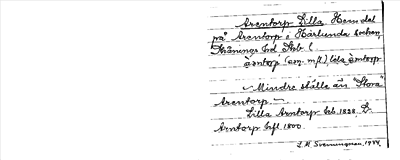 Arentorp Lilla, Hem.del
på Arentorp i Härlunda socken,
Skånings hd. Skbl.
àrntorp (anv. mfl), lila àrntorp
Mindre ställe än "Stora"
Arentorp.
Lilla Arntorp Geb. 1828. L.
Arntorp 1800.
S. H. Svenningson, 1984.